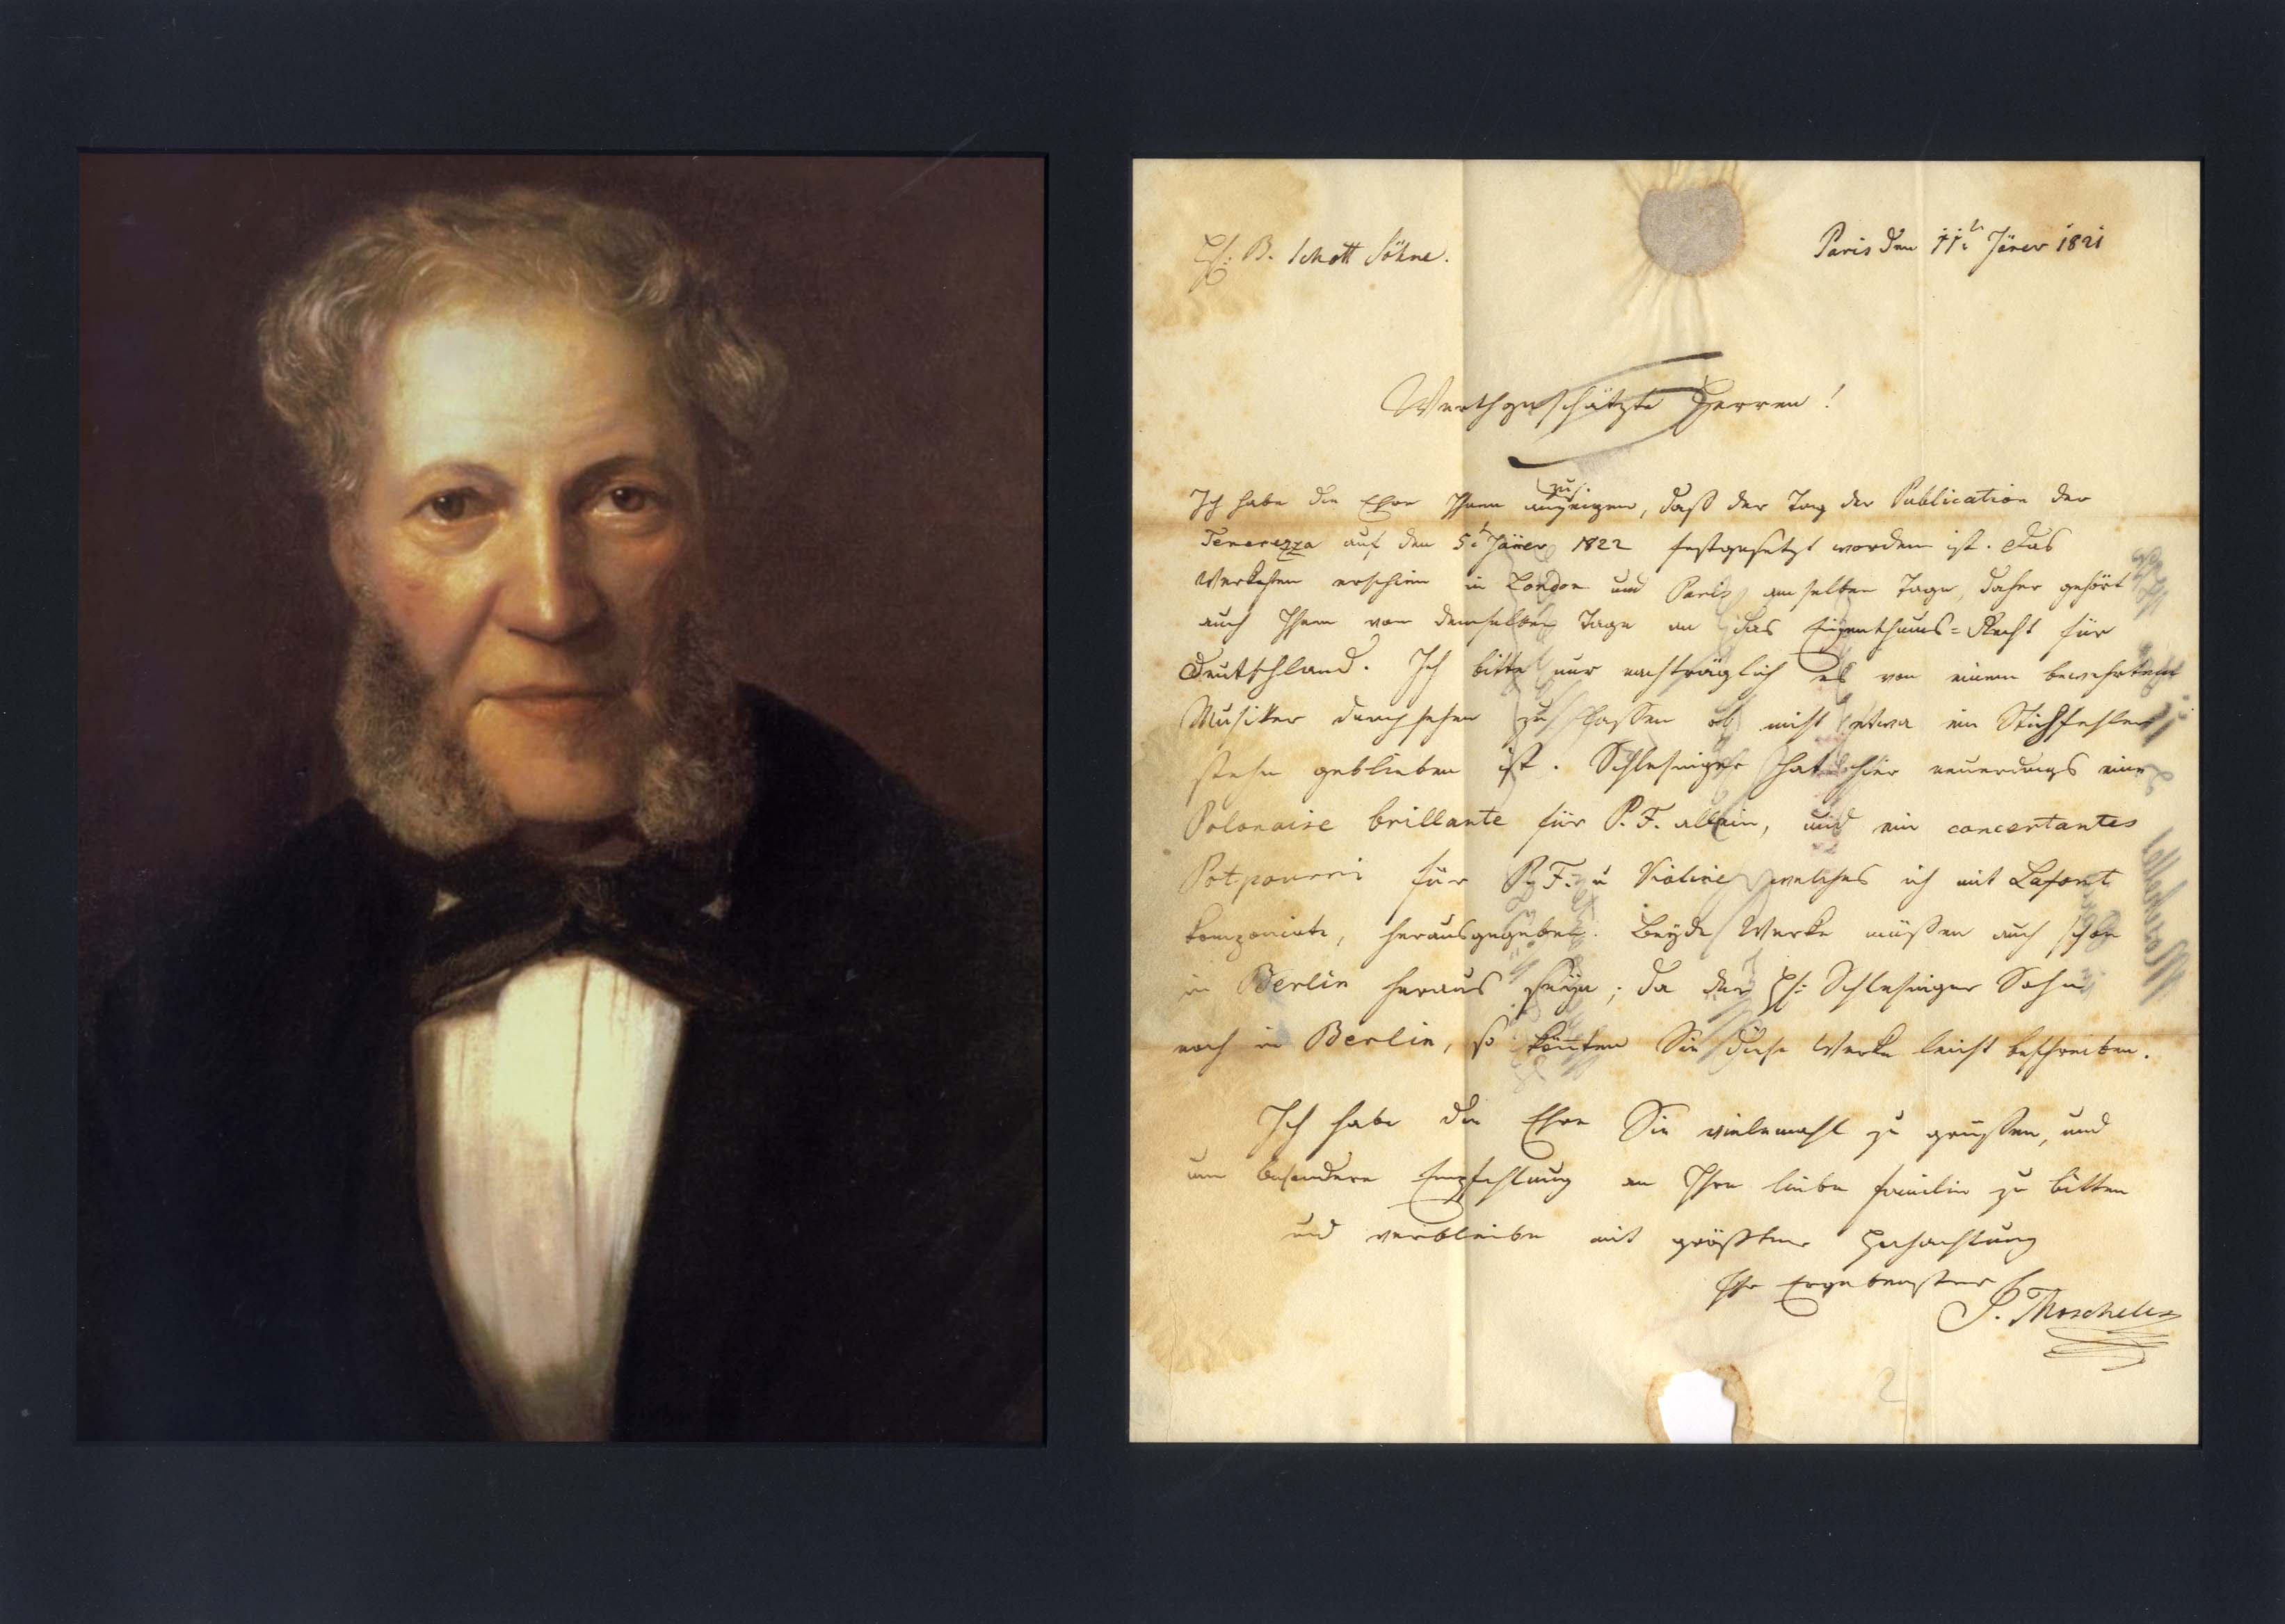 H: B. Schott Söhne.
Paris den 11t Jäner 1821
Werthgeschätzte Herren!
zu
Ich habe die Ehre Ihnen anzeigen, daß der Tag der Publication der
Tenerezza auf den 5t Jäner 1822 festgesetzt worden ist. Das
Werkchen erschien in London und Paris am selben Tage, daher gehört
auch Ihnen von demselben Tage an das Eigenthums=Recht für
Deutschland. Ich bitte nur nachträglich es von einem bewehrten
Musiker durchsehen zu lassen ob nicht etwa ein Stichfehler
stehn geblieben ist. Schlesinger hat hier neuerdings eine
Polonaise brillante für P. F. allein, und ein concertantes
Potpourri für P. F. u Violine welches ich mit Lafont
komponirte, herausgegeben. Beyde Werke müßen auch schon
in Berlin heraus seyn; da der H: Schlesinger Sohn
noch in Berlin, so könten Sie diese Werke leicht beschreiben.
Ich habe die Ehre Sie vielemahl zu grüßen, und
um besondere Empfehlung an Ihre liebe Familie zu bitten
und verbleibe mit größter Hochachtung
Ihr Ergebenster
I. Moscheles
2